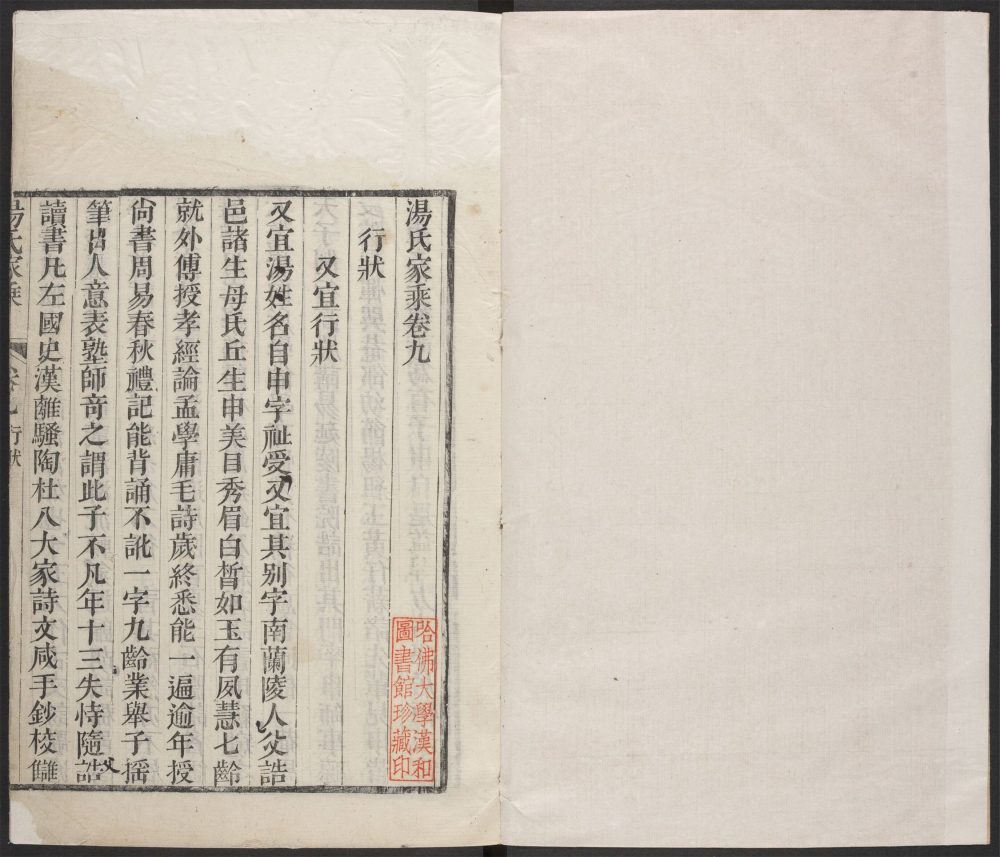 湯氏家乘卷九
行狀
又宜行狀
又宜湯姓名自申字祉受又宜其别字南蘭陵人父誥
邑諸生母氏丘生申美目秀眉白晳如玉有夙慧七齡
就外傅授孝經論孟學庸毛詩歲終悉能一遍逾年授
尚書周易春秋禮記能背誦不訛一字九齡業舉子搖
筆出人意表塾師奇之謂此子不凡年十三失恃隨誥父
讀書凡左國史漢離騷陶杜八大家詩文咸手鈔校讎
湯氏家乘
卷九 行狀
哈佛大學漢和
圖書館珍藏印